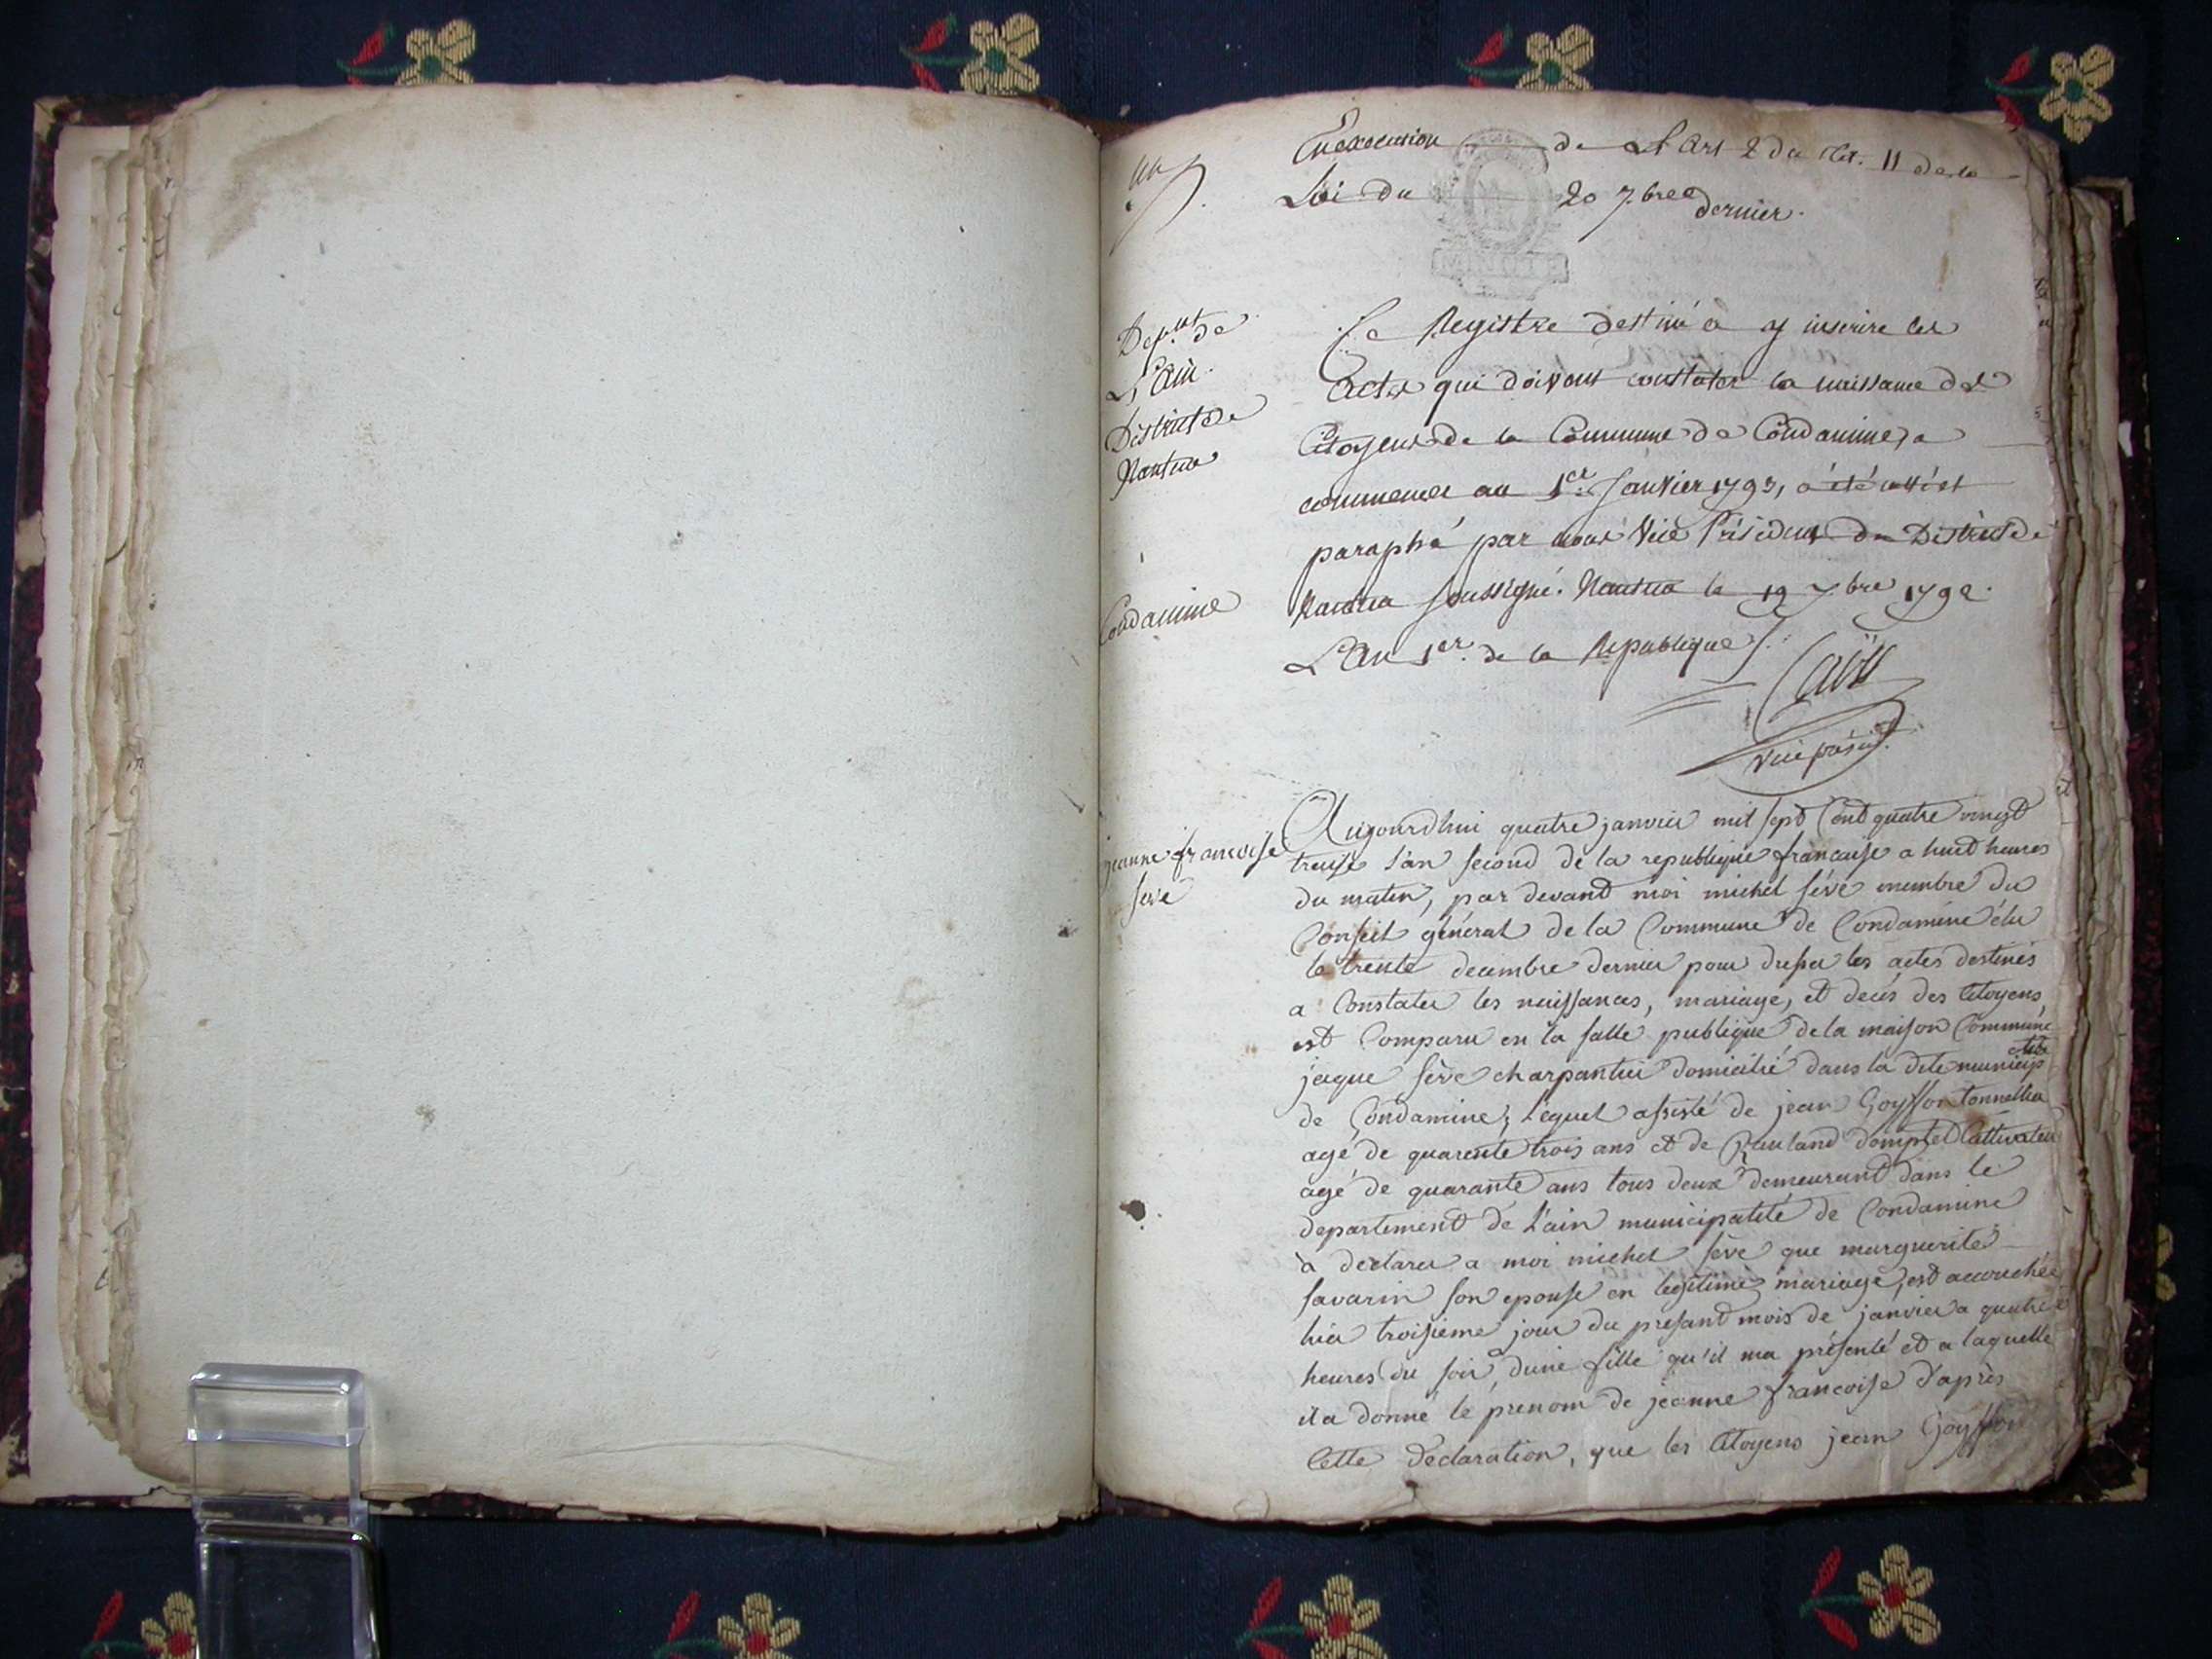 un
En execution de L'Art 2 du tit. 11 de la
Loi du 20 7.bre dernier.
Dep.nt de
L'Ain.
District de
Nantua
Le Registre destiné a y inscrire les
Actes qui doivent constater la naissance des
Citoyens de la Commune de Condamine, a
commencer au 1er Janvier 1793, a été cotté et
paraphé par nous Vice Président du District de
Condamine
Nantua soussigné. Nantua le 19 bre 1792.
L'An 1er. de la Republique
vice présidt.
jeanne francoise
seve
Aujourdhui quatre janvier mil sept Cent quatre vingt
treise l'an second de la republique francaise a huit heures
du matin, par devant moi michel sève membre du
Conseil général de la Commune de Condamine élu
le trente decembre dernier pour dresser les actes destinés
a Constater les naissances, mariage, et decés des Citoyens,
est Comparu en la salle publique de la maison Commune
jaque sève charpantier domicilié dans la dite municip
alité
de Condamine, lequel assisté de jean Goyffon tonnellier
agé de quarente trois ans et de Rauland domptet Cultivateur
agé de quarante ans tous deux demeurant dans le
departement de L'ain municipalité de Condamine
à declarer a moi michel sève que marguerite
savarin son epouse en legitime mariage, est accouchée
hier troisieme jour du presant mois de janvier a quatre
heures du soir, dune fille qu'il ma présenté et a laquelle
il a donné le prenom de jeanne francoise d'après
Cette déclaration, que les Citoyens jean Goyffon